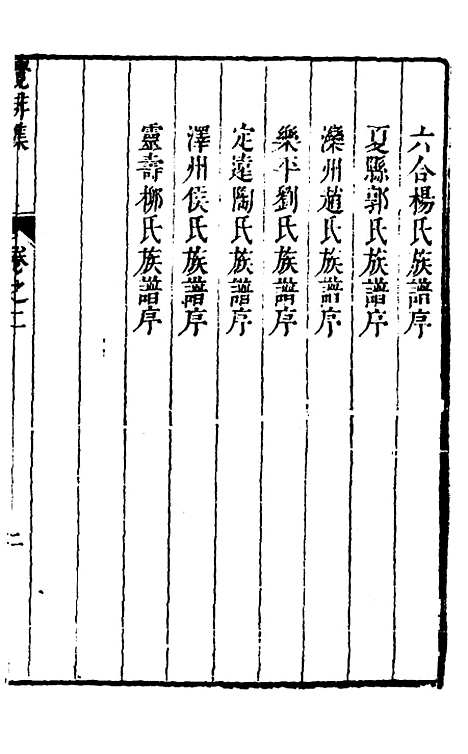 六合楊氏族譜序
夏縣郭氏族譜序
灤州趙氏族譜序
樂平劉氏族譜序
定遠陶氏族譜序
澤州侯氏族譜序
靈壽鄉氏族譜序
覺非集
卷之二
二